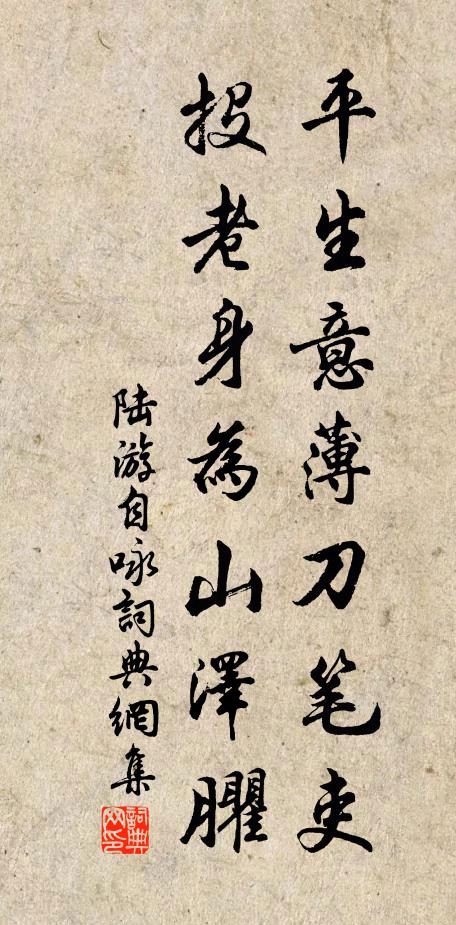 平生意薄刀笔吏
投老身為山澤臞
陸游自咏詞典網集
詞典网印